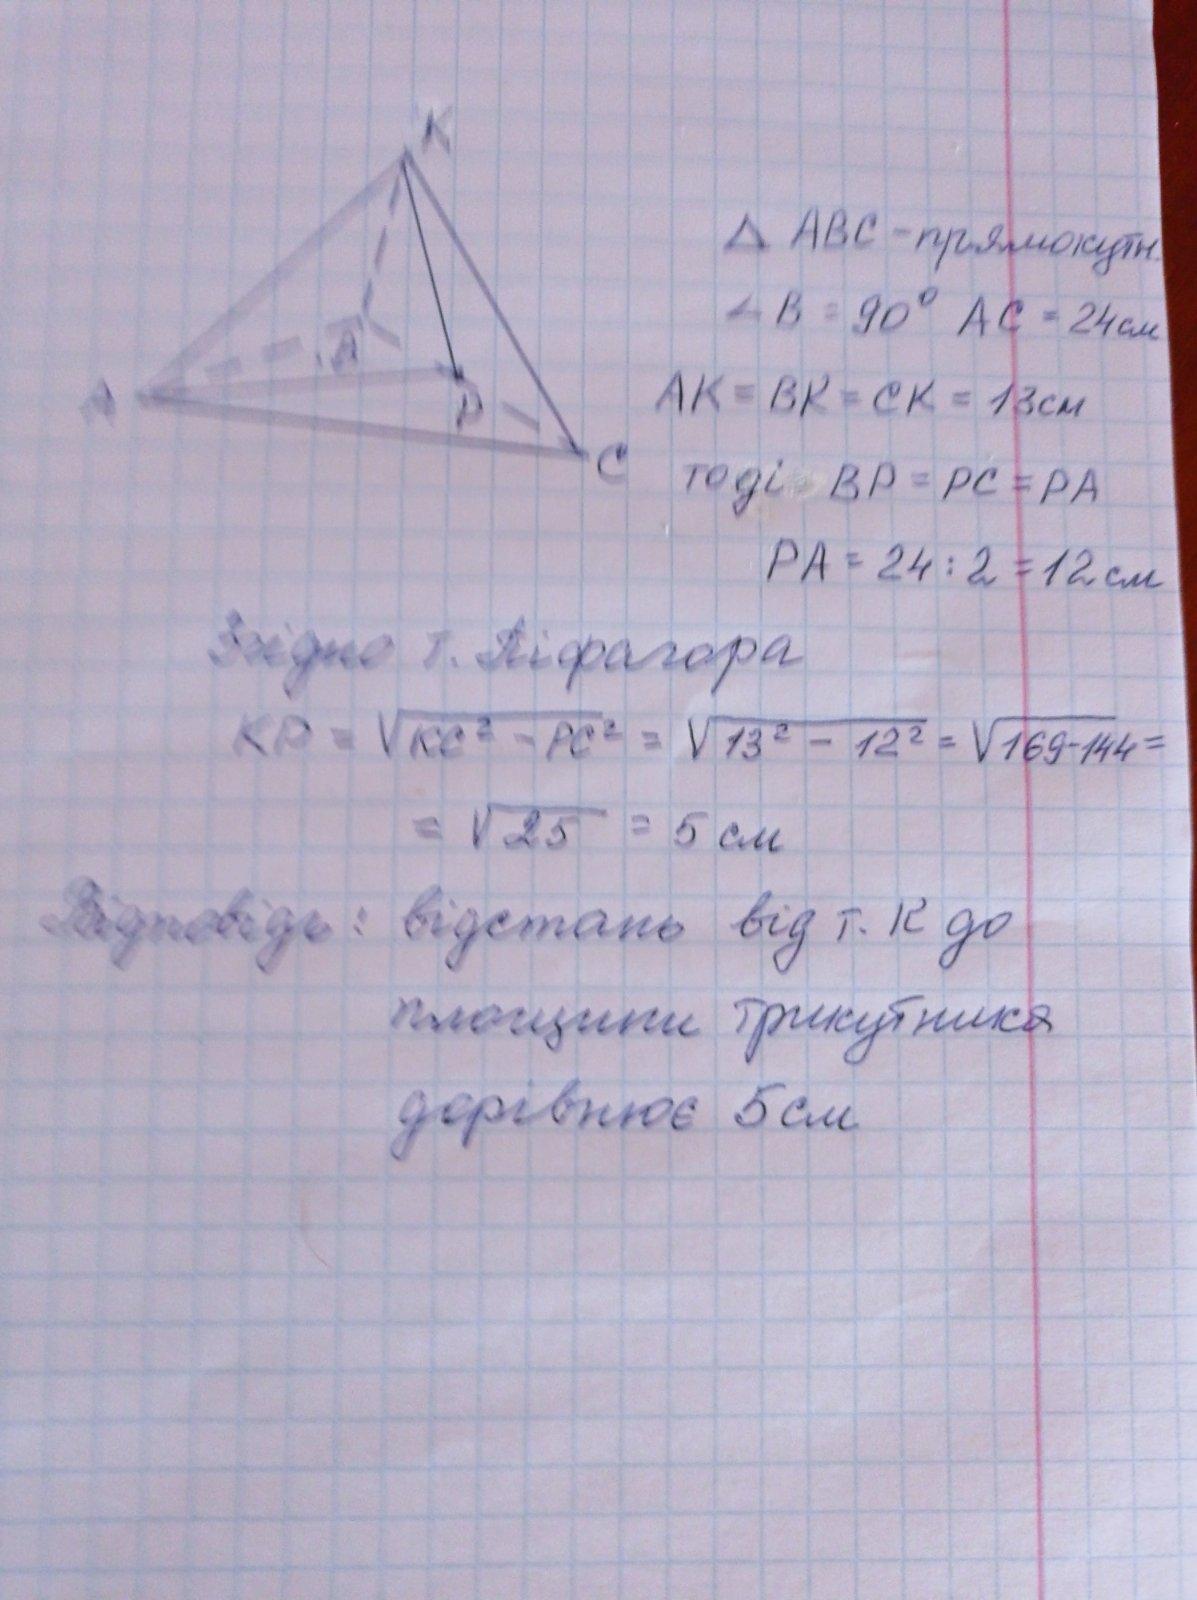 K
A
B
P
C
△ ABC - прямокутн.
∠B = 90° AC = 24см
AK = BK = CK = 13см
тоді BP = PC = PA
PA = 24 : 2 = 12 см
Згідно т. Піфагора
KP = √KC² - PC² = √13² - 12² = √169-144 =
= √25 = 5 см
Відповідь: відстань від т. K до
площини трикутника
дорівнює 5 см